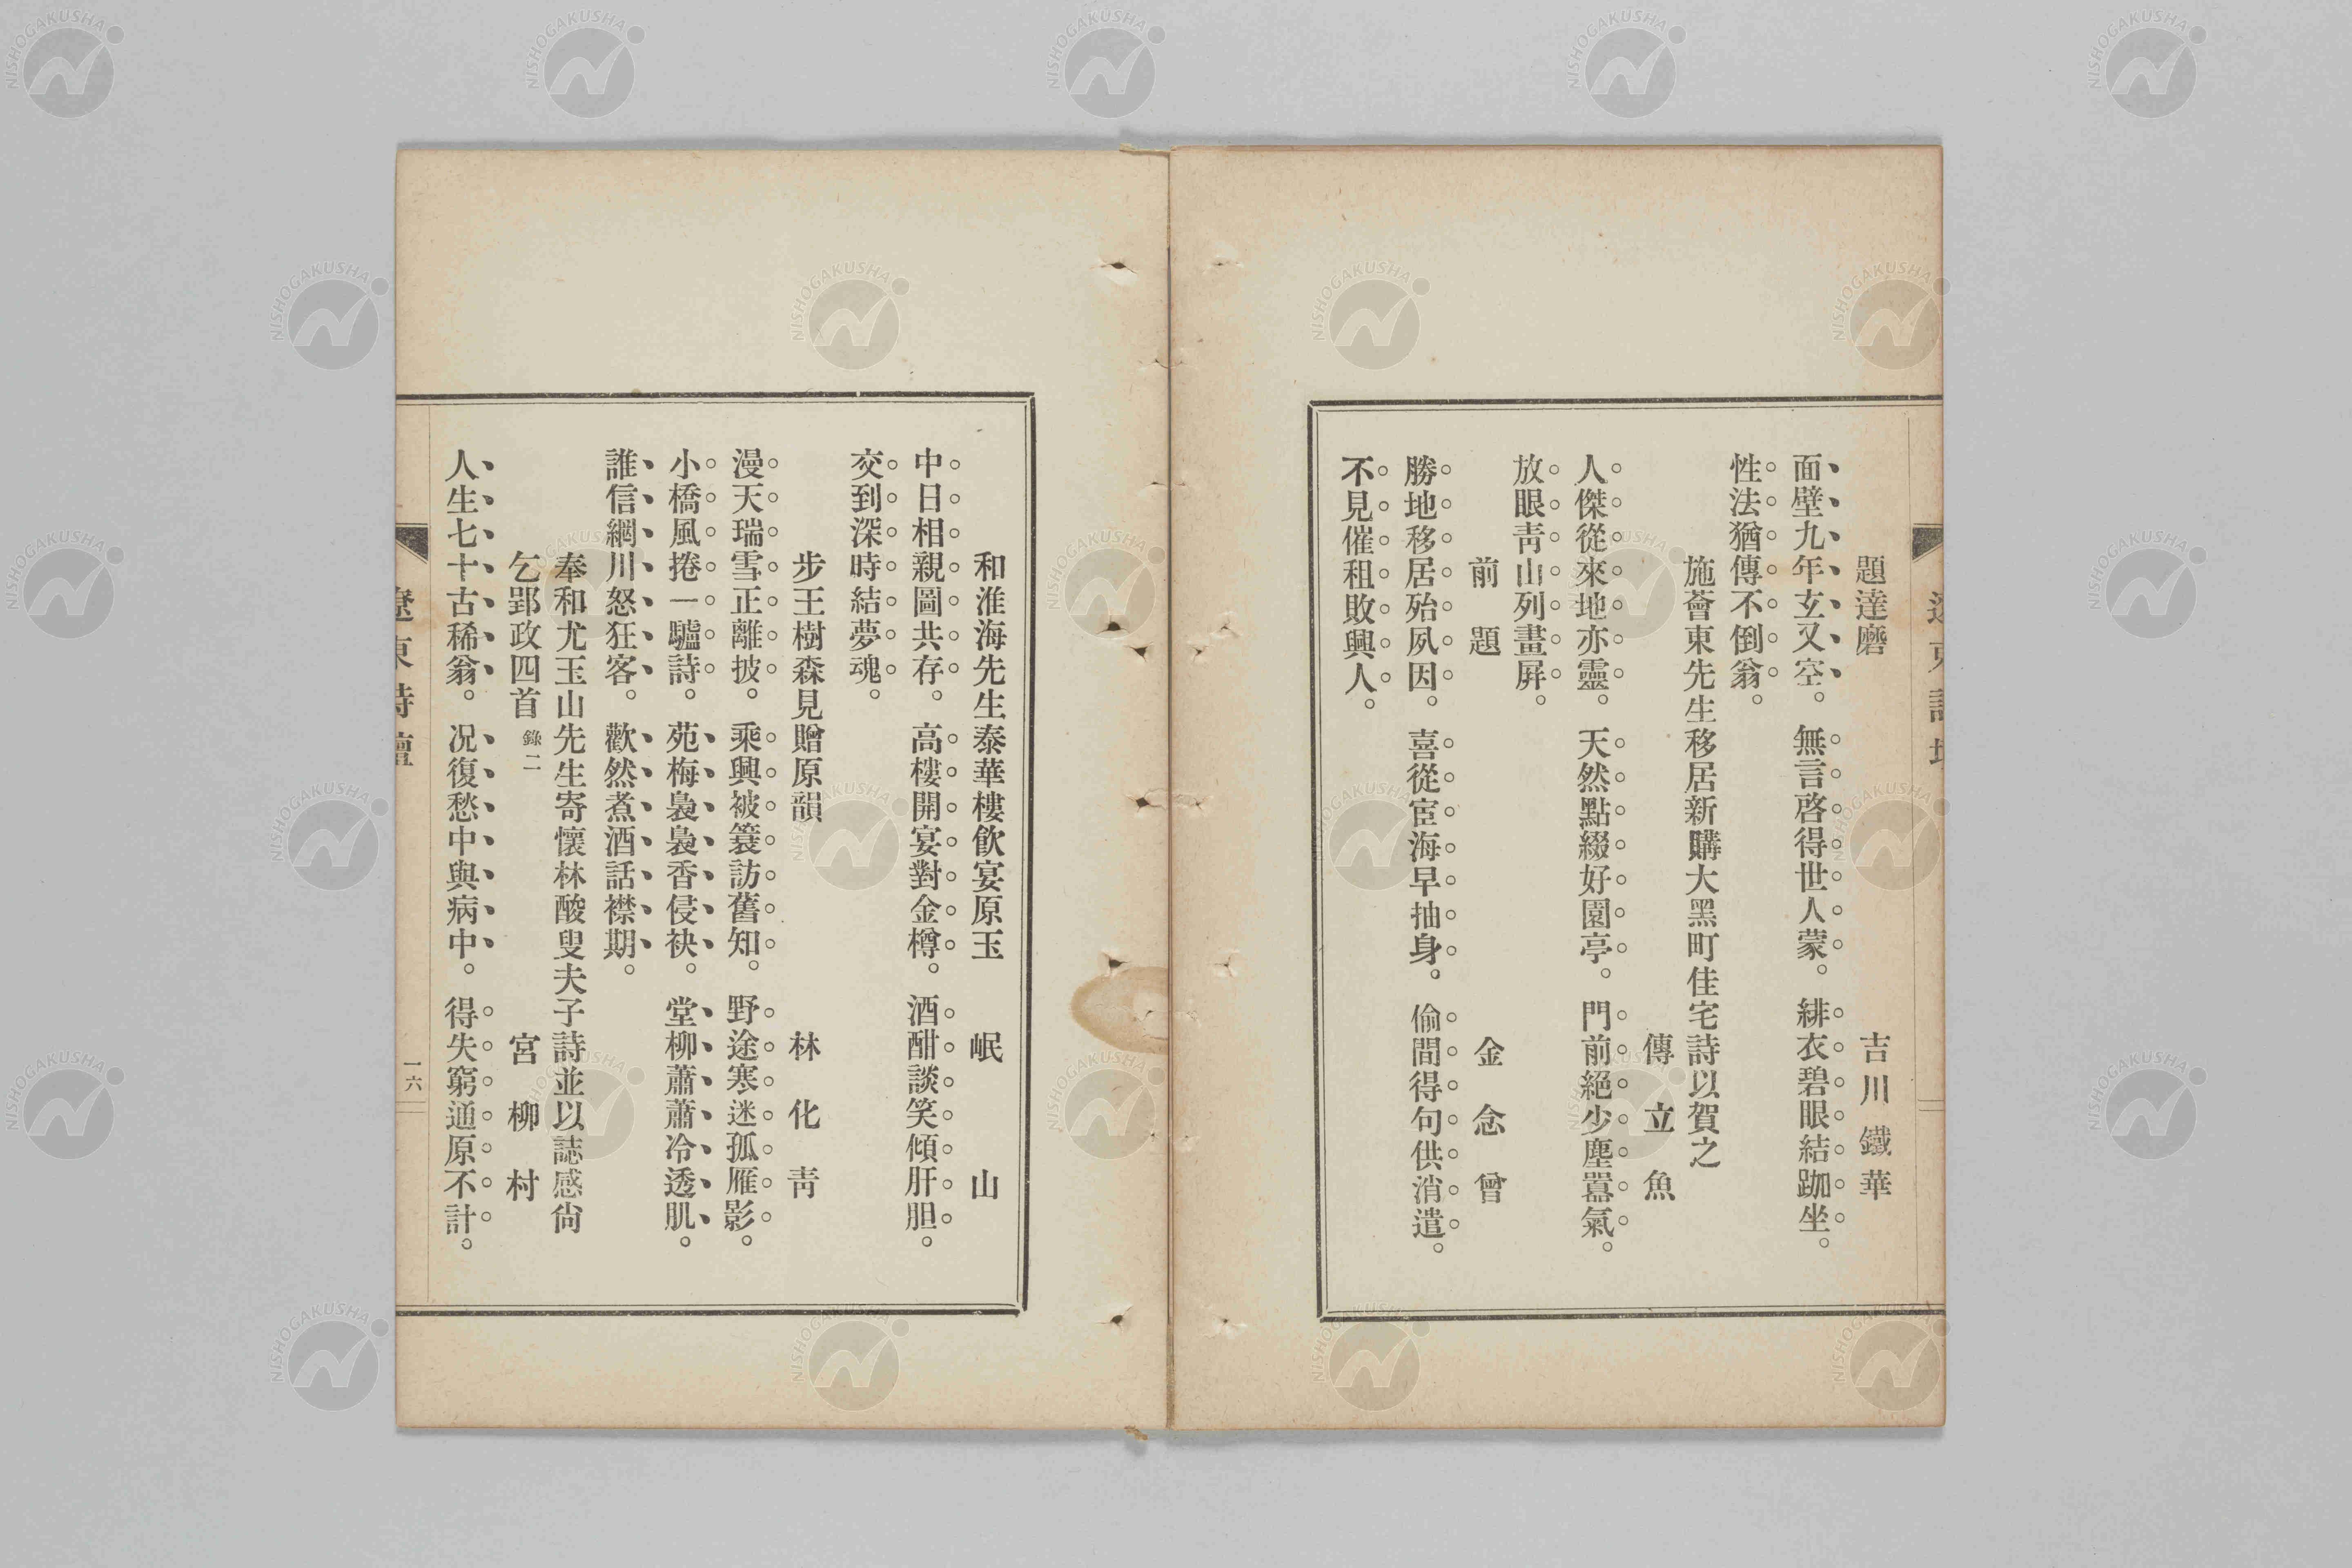 題達磨　吉川鐵華
面壁九年玄又空。無言啓得世人蒙。緋衣碧眼結跏坐。
性法猶傳不倒翁。
施薈東先生移居新購大黑町佳宅詩以賀之
傳立魚
人傑從來地亦靈。天然點綴好園亭。門前絕少塵囂氣。
放眼靑山列畫屛。
前題　金念曾
勝地移居殆夙因。喜從宦海早抽身。偷間得句供消遣。
不見催租敗興人。
和淮海先生泰華樓飮宴原玉　岷山
中日相親圖共存。高樓開宴對金樽。酒酣談笑傾肝胆。
交到深時結夢魂。
步王樹森見贈原韻　林化靑
漫天瑞雪正離披。乘興被簑訪舊知。野途寒迷孤雁影。
小橋風捲一驢詩。苑梅裊裊香侵袂。堂柳蕭蕭冷透肌。
誰信網川怒狂客。歡然煮酒話襟期。
奉和尤玉山先生寄懷林酸叟夫子詩並以誌感尙
乞郢政四首 錄二　宮柳村
人生七十古稀翁。况復愁中與病中。得失窮通原不計。
遼東詩壇
一六
NISHOGAKUSHA